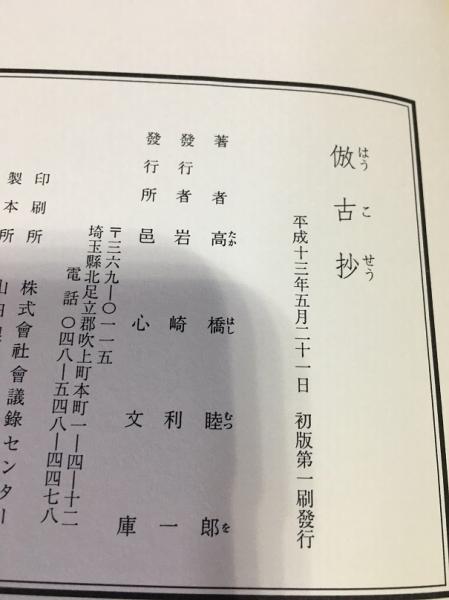 倣古抄
はう こ せう
平成十三年五月二十一日 初版第一刷發行
著者 高橋睦郎
たか はし むつ を
發行者 岩崎利一
發行所 邑心文庫
〒三六九―〇一一五
埼玉縣北足立郡吹上町本町一―四―十二
電話 〇四八―五四八―四四七八
印刷所 株式會社會議錄センター
製本所